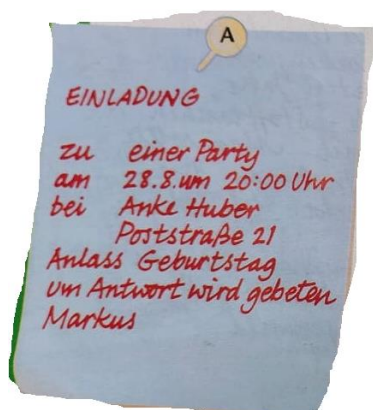 A
EINLADUNG
zu einer Party
am 28.8. um 20:00 Uhr
bei Anke Huber
Poststraße 21
Anlass Geburtstag
um Antwort wird gebeten
Markus